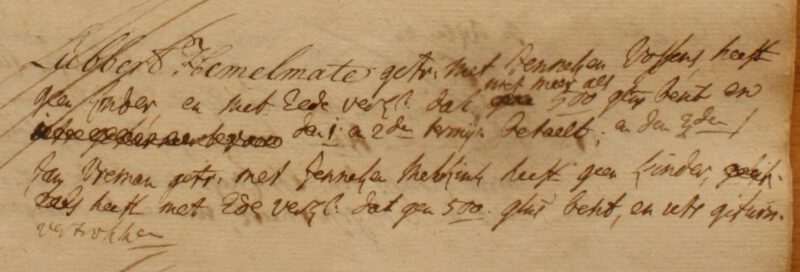 Lubbert Hemelmate getr. met Jenneken Vossens heeft
geen kinder en met Eede verkl. dat niet meer als 500 guls besit en
den 1 en 2den termijn betaelt, en den 3den
Jan Vreman getr. met Jenneken Mebbink heeft geen kinder,
heeft met Ede verkl. dat gen 500 guls besit, en
vertrokken